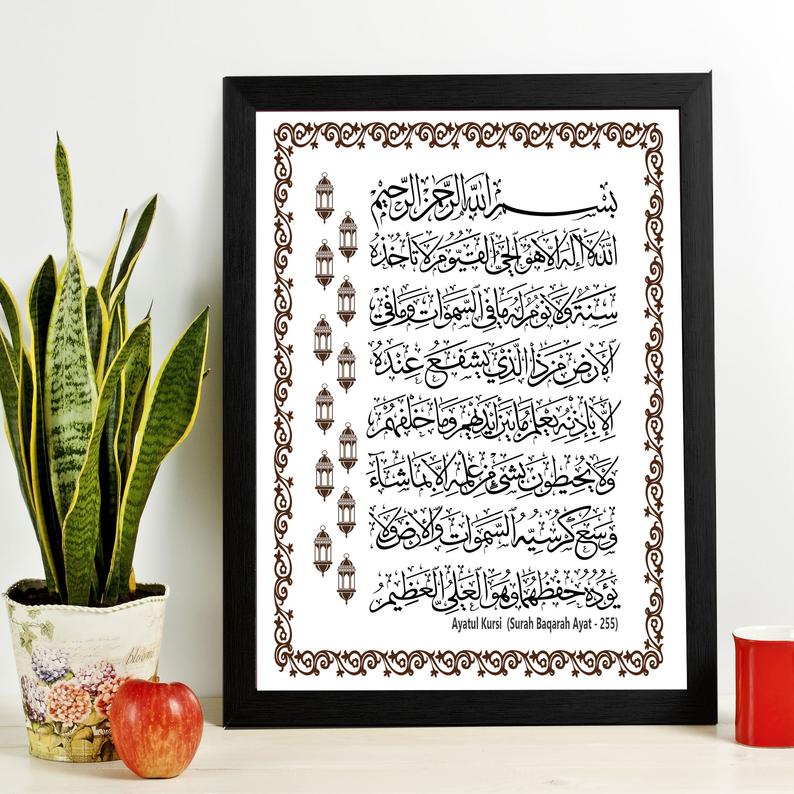 بِسْمِ اللّٰهِ الرَّحْمٰنِ الرَّحِيْمِ
اَللّٰهُ لَا اِلٰهَ اِلَّا هُوَ الْحَىُّ الْقَيُّوْمُ لَا تَأْخُذُهٗ
سِنَةٌ وَلَا نَوْمٌ لَهٗ مَا فِى السَّمٰوَاتِ وَمَا فِى
الْاَرْضِ مَنْ ذَا الَّذِىْ يَشْفَعُ عِنْدَهٗ
اِلَّا بِاِذْنِهٖ يَعْلَمُ مَا بَيْنَ اَيْدِيْهِمْ وَمَا خَلْفَهُمْ
وَلَا يُحِيْطُوْنَ بِشَىْءٍ مِنْ عِلْمِهٖ اِلَّا بِمَا شَآءَ
وَسِعَ كُرْسِيُّهُ السَّمٰوَاتِ وَالْاَرْضَ وَلَا
يَؤُدُهٗ حِفْظُهُمَا وَهُوَ الْعَلِىُّ الْعَظِيْمُ
Ayatul Kursi (Surah Baqarah Ayat - 255)